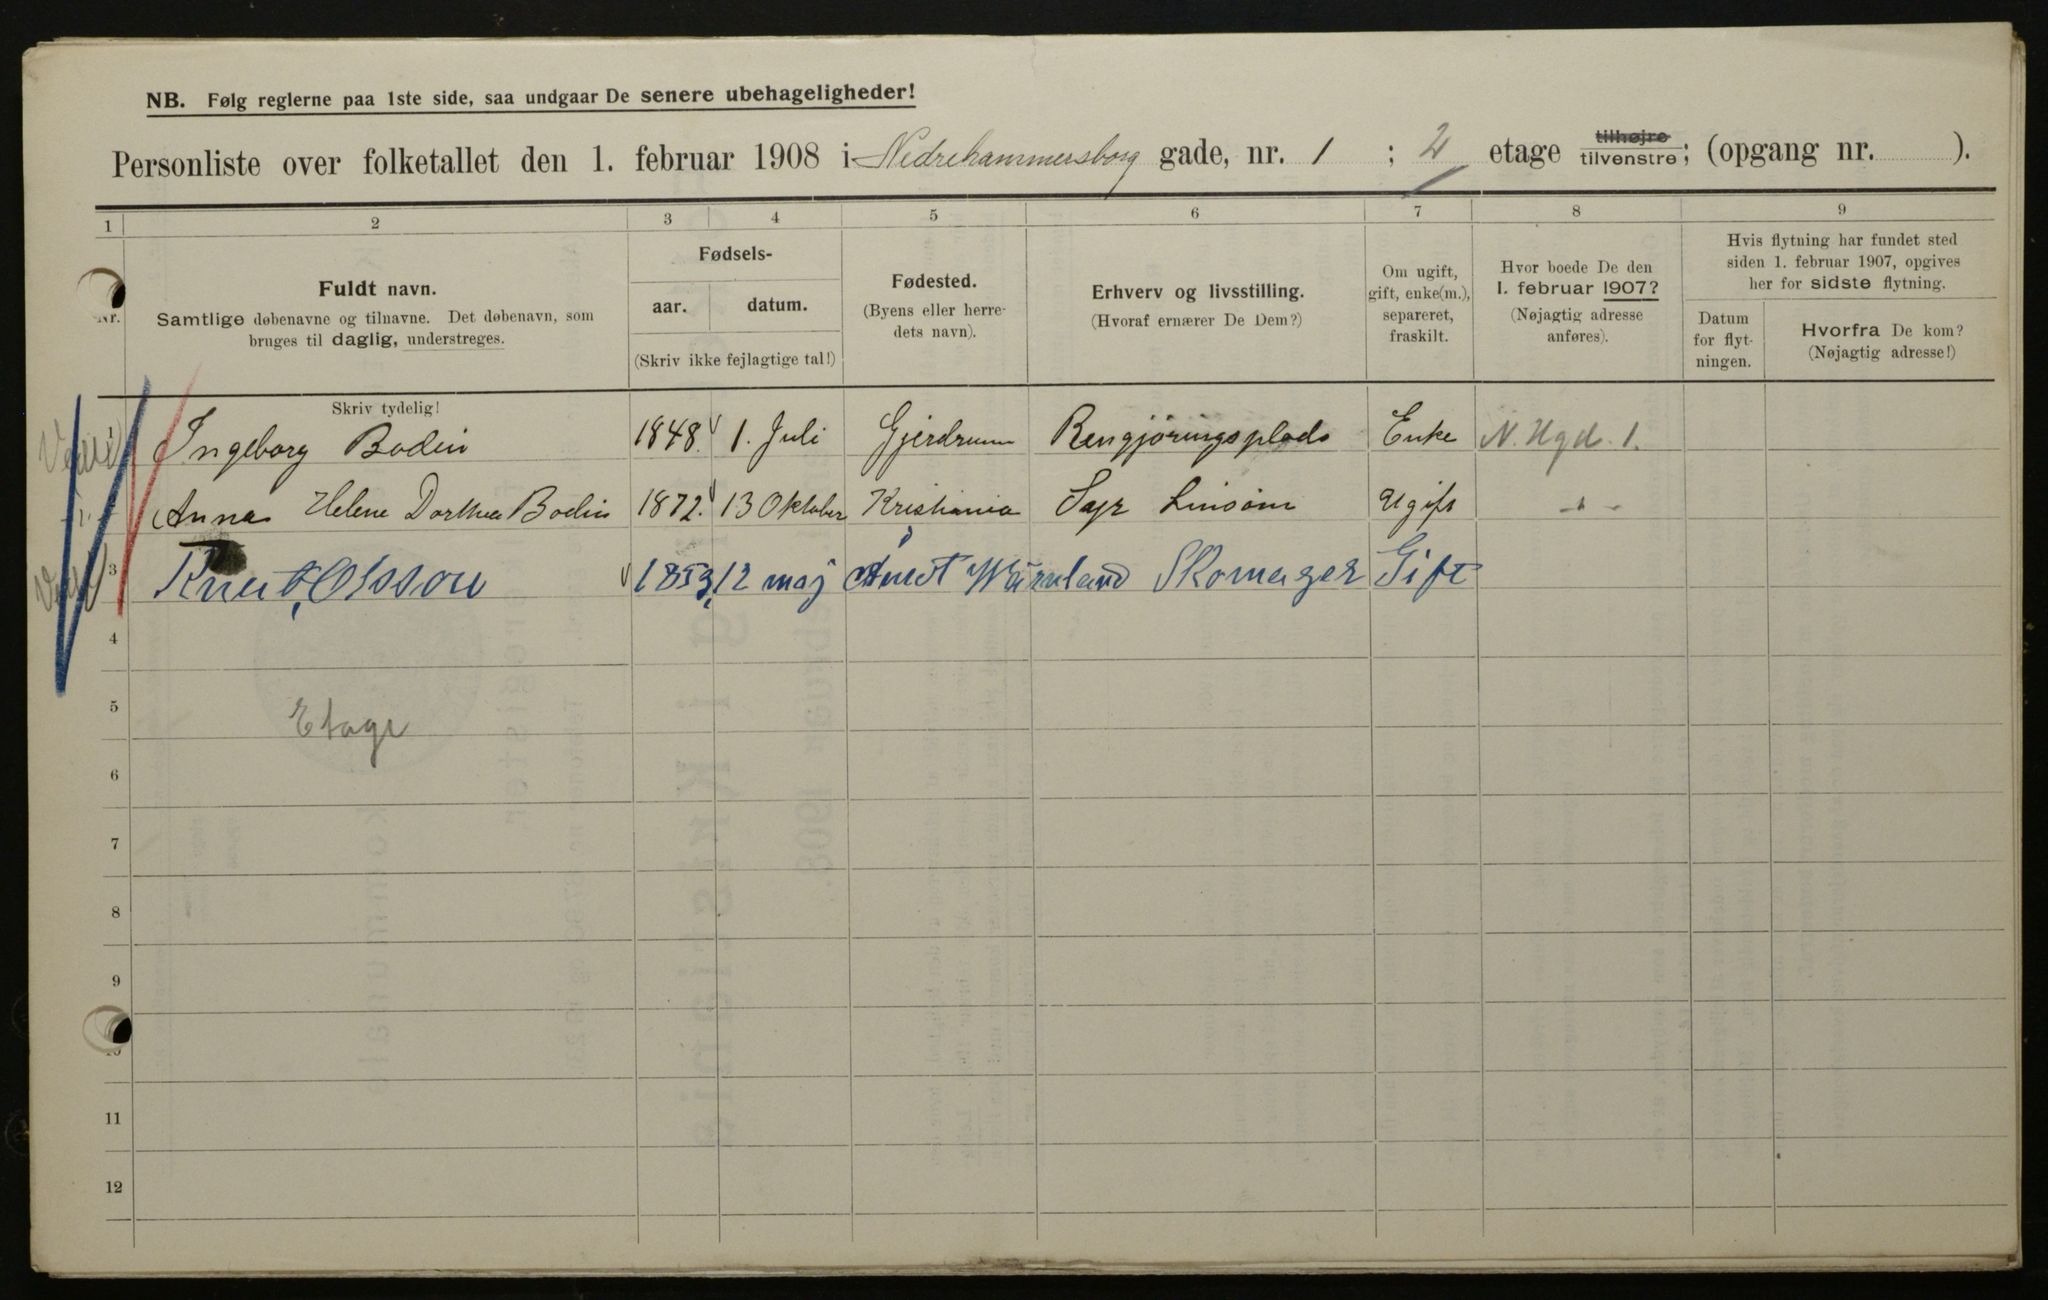 NB. Følg reglerne paa 1ste side, saa undgaar De senere ubehageligheder!
Personliste over folketallet den 1. februar 1908 i Nedrehammersborg gade, nr. 1 ; 2 etage tilhøjre tilvenstre; (opgang nr. ).
1 2 3 4 5 6 7 8 9
Nr.
Fuldt navn.
Samtlige døbenavne og tilnavne. Det døbenavn, som
bruges til daglig, understreges.
Fødsels-
aar. datum.
(Skriv ikke fejlagtige tal!)
Fødested.
(Byens eller herre-
dets navn).
Erhverv og livsstilling.
(Hvoraf ernærer De Dem?)
Om ugift,
gift, enke(m.),
separeret,
fraskilt.
Hvor boede De den
1. februar 1907?
(Nøjagtig adresse
anføres).
Hvis flytning har fundet sted
siden 1. februar 1907, opgives
her for sidste flytning.
Datum
for flyt-
ningen.
Hvorfra De kom?
(Nøjagtig adresse!)
Skriv tydelig!
1 Ingeborg Bodin 1848 1. Juli Gjerdrum Rengjøringsplads Enke N. Hgd. 1.
Anna Helene Dorthea Bodin 1872. 13 Oktober Kristiania Syr Linsøm Ugift
3 Knut Olsson 1853, 12 maj Wärmland Skomager Gift
4
Etage
5
6
7
8
9
10
11
12